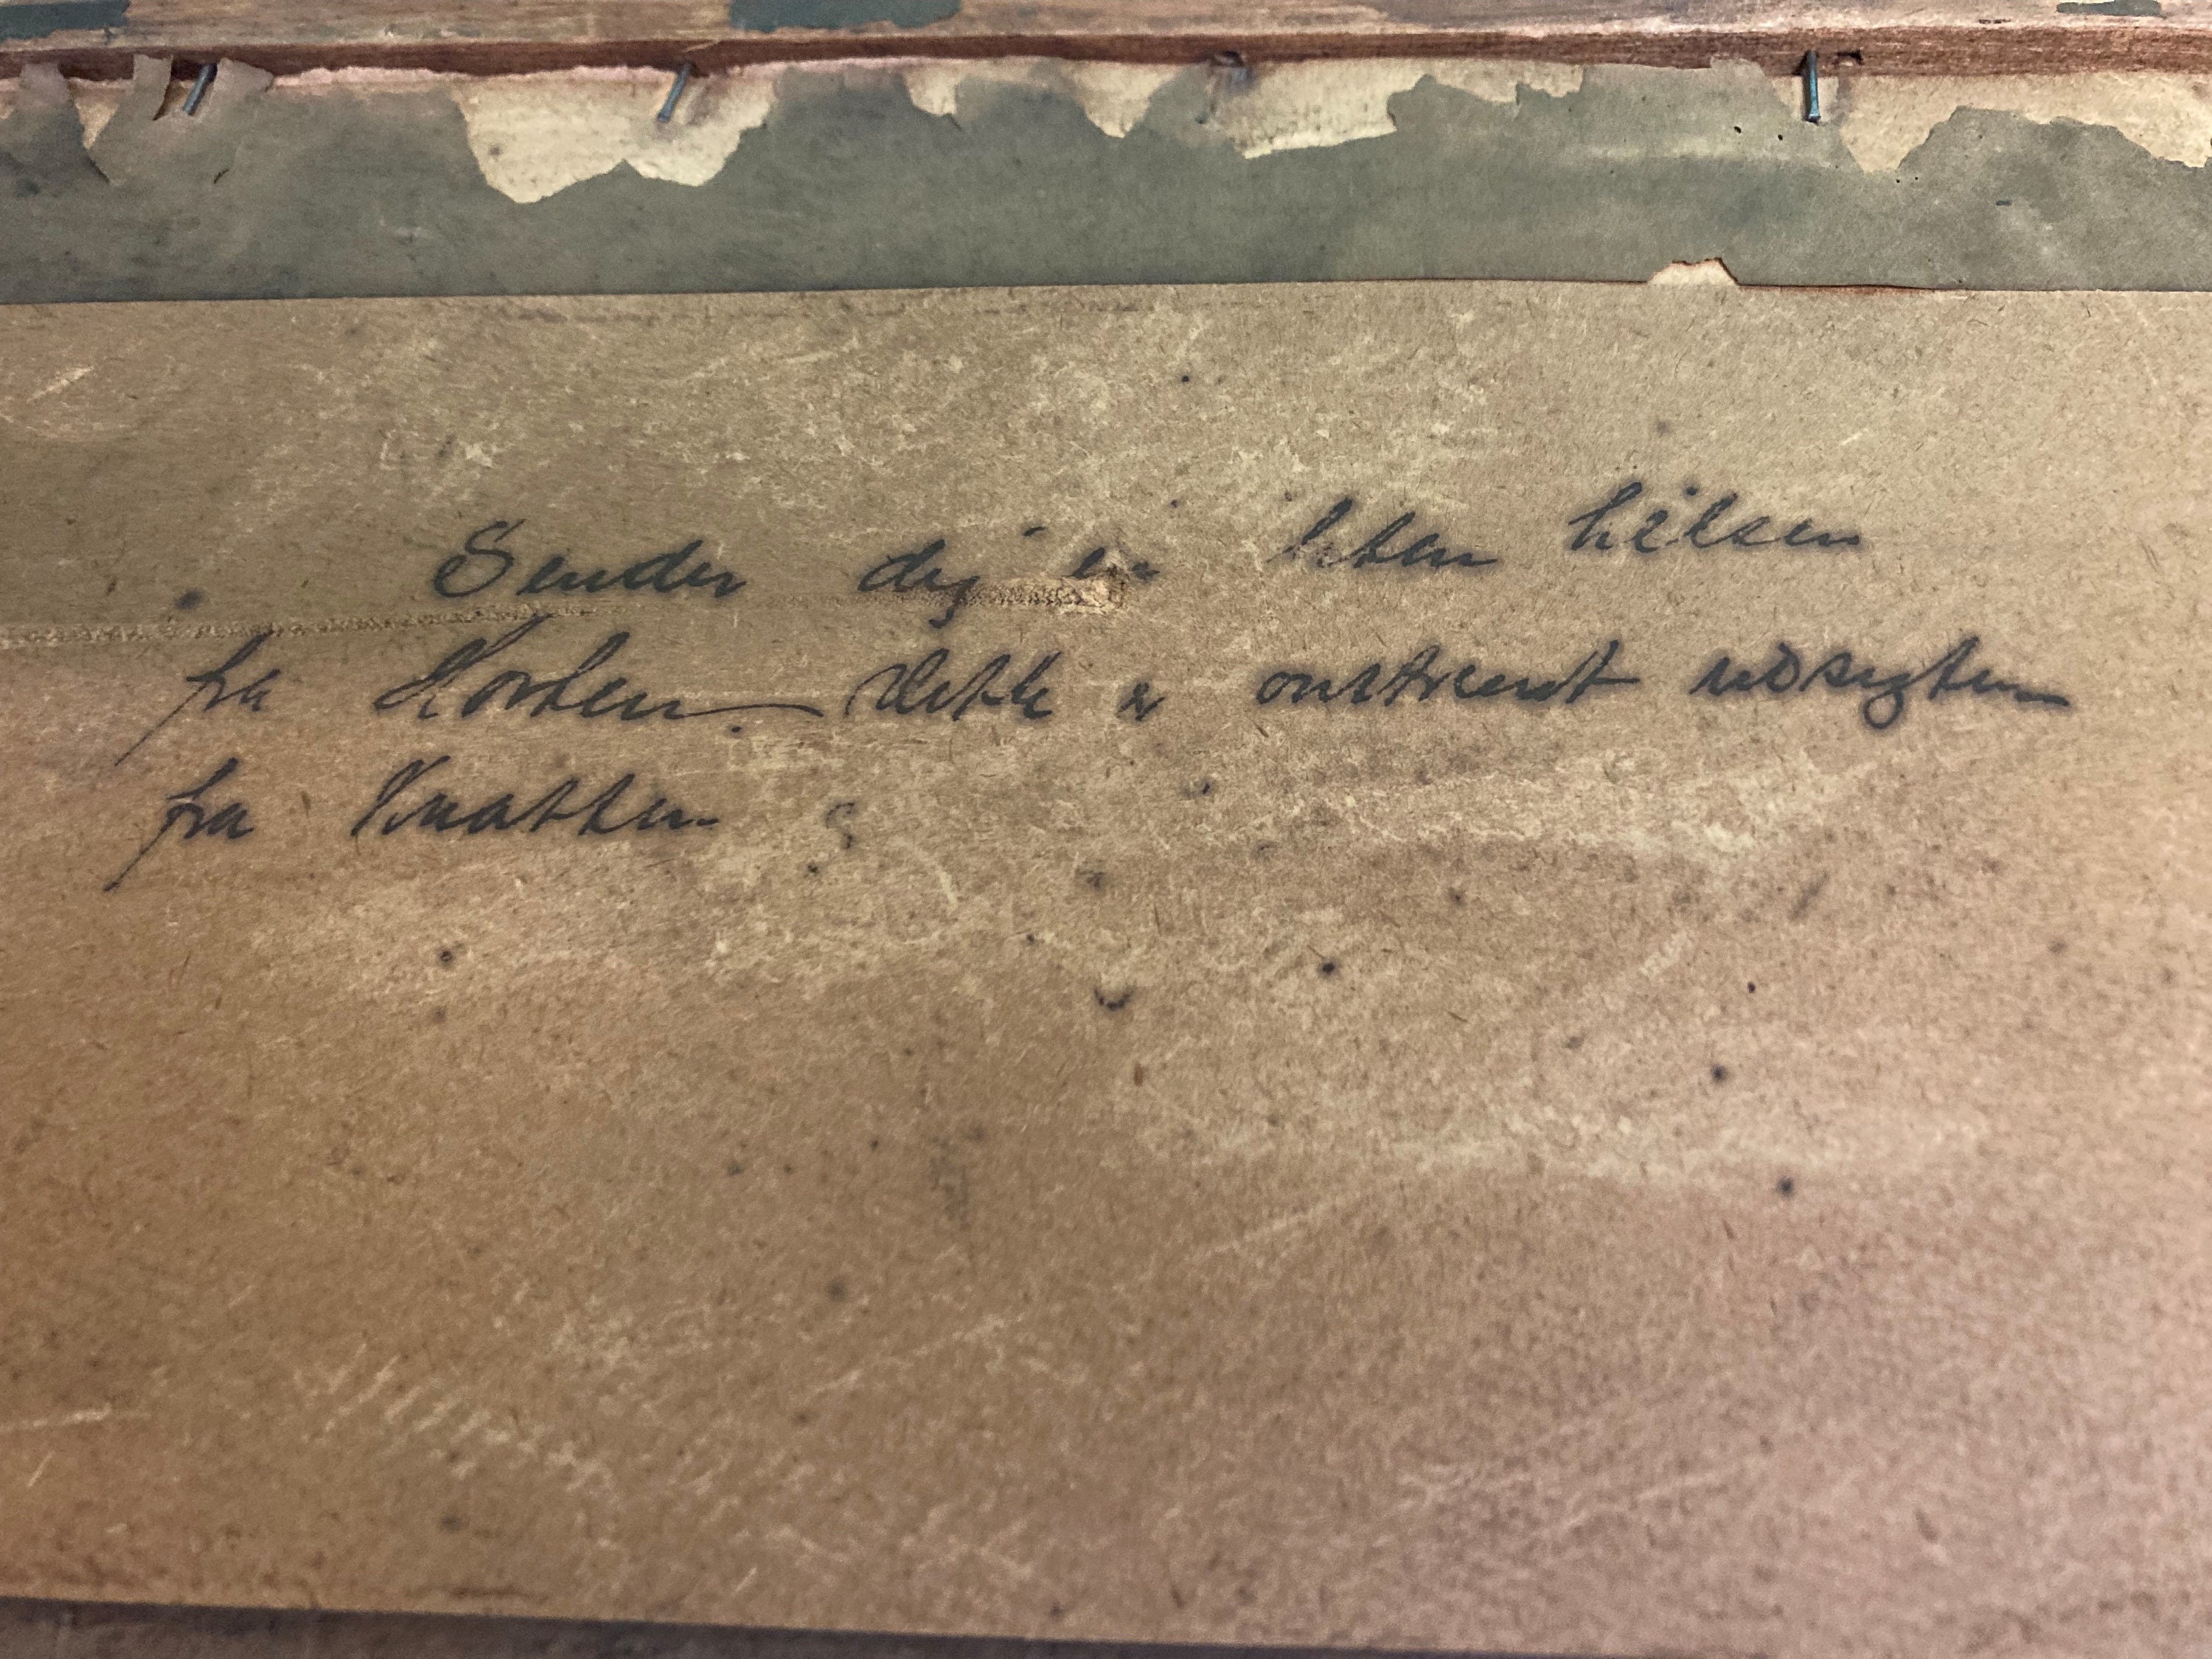 Sender dig en liten hilsen
fra Horten. Dette er omtrent udsigten
fra Knatten